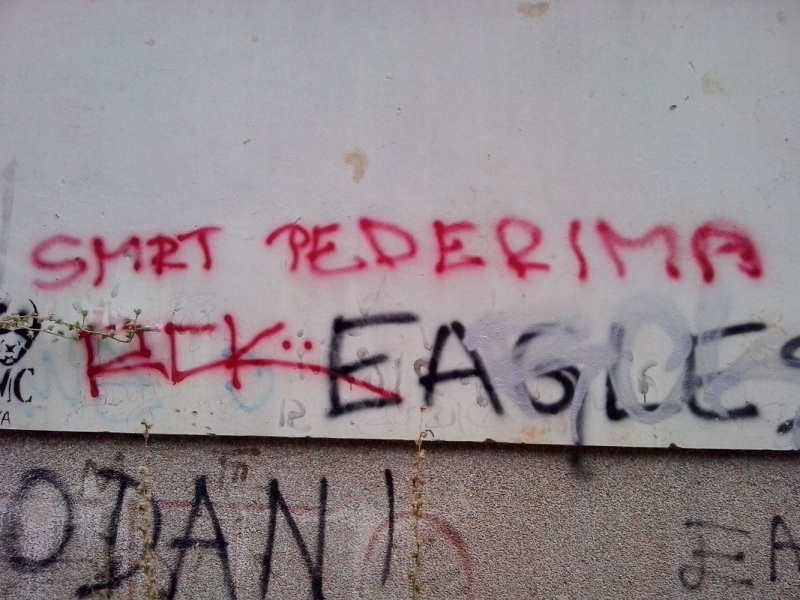 SMRT PEDERIMA
EAGLES
MC
ODANI
EA